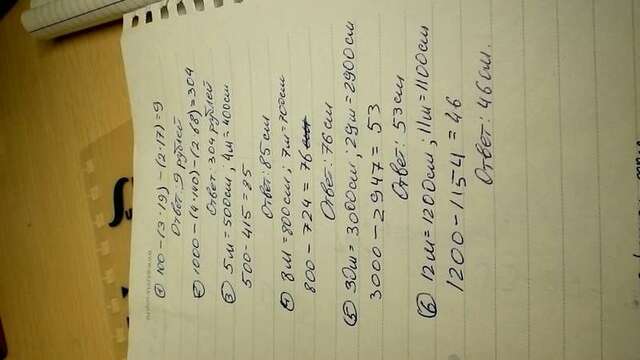 ① 100-(3·19)-(2·17)=9
Ответ: 9 рублей
② 1000-(4·140)-(2·68)=304
Ответ: 304 рублей
③ 5м=500см; 4м=400см
500-415=85
Ответ: 85см
④ 8м=800см; 7м=700см
800-724=76
Ответ: 76см
⑤ 30м=3000см; 29м=2900см
3000-2947=53
Ответ: 53см
⑥ 12м=1200см; 11м=1100см
1200-1154=46
Ответ: 46см.